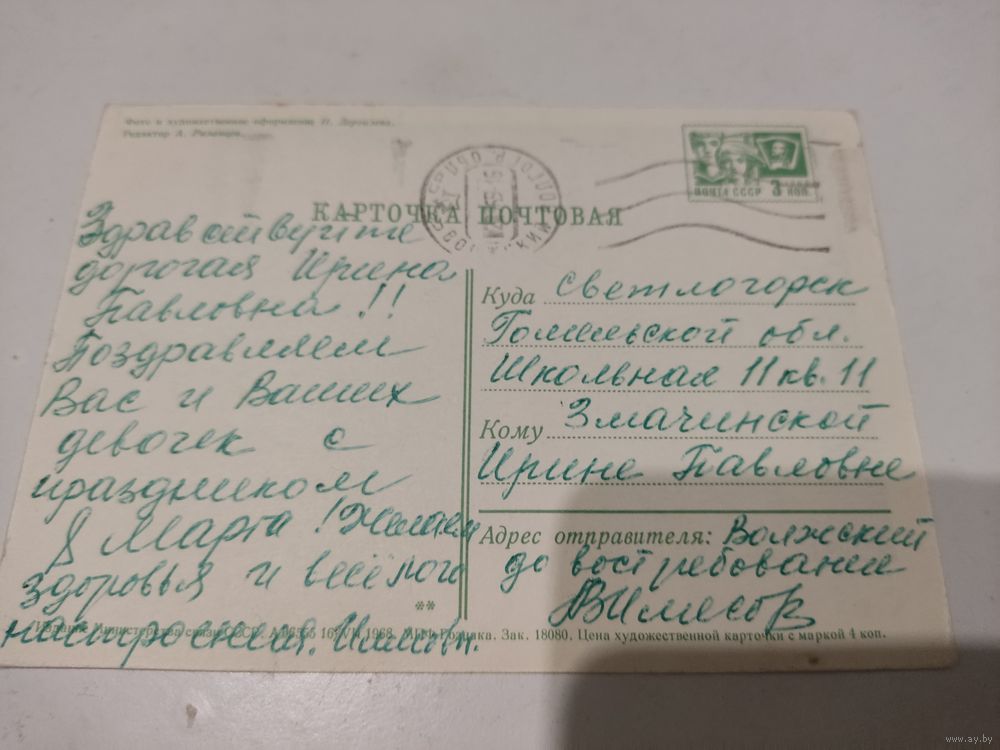 Фото и художественное оформление
Редактор А.
КАРТОЧКА ПОЧТОВАЯ
ПОЧТА СССР 3 КОП.
Здравствуйте
дорогая Ирина
Павловна!!
Поздравляем
Вас и Ваших
девочек с
праздником
8 Марта! Желаем
здоровья и весёлого
настроения.
Куда Светлогорск
Гомельской обл.
Школьная 11 кв. 11
Кому Змачинской
Ирине Павловне
Адрес отправителя: Волжский
до востребование
**
Издание Министерства связи СССР. 1968. МПФ Гознака. Зак. 18080. Цена художественной карточки с маркой 4 коп.
www.ay.by